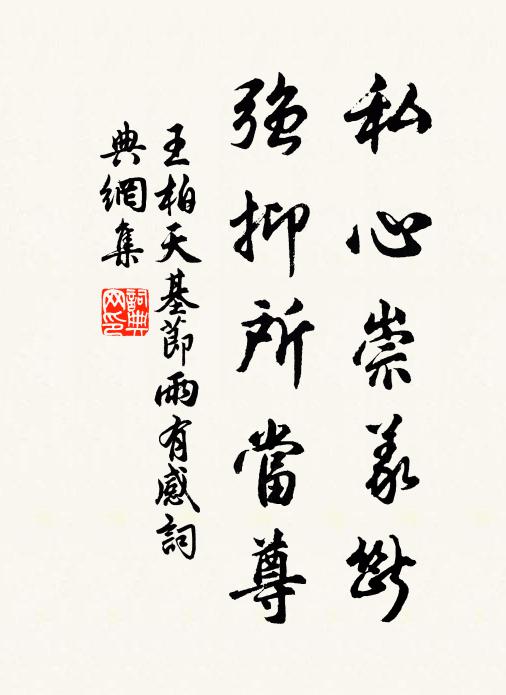 私心崇義斷
強抑所當尊
王柏天基節雨有感詞
典網集
詞典
网印